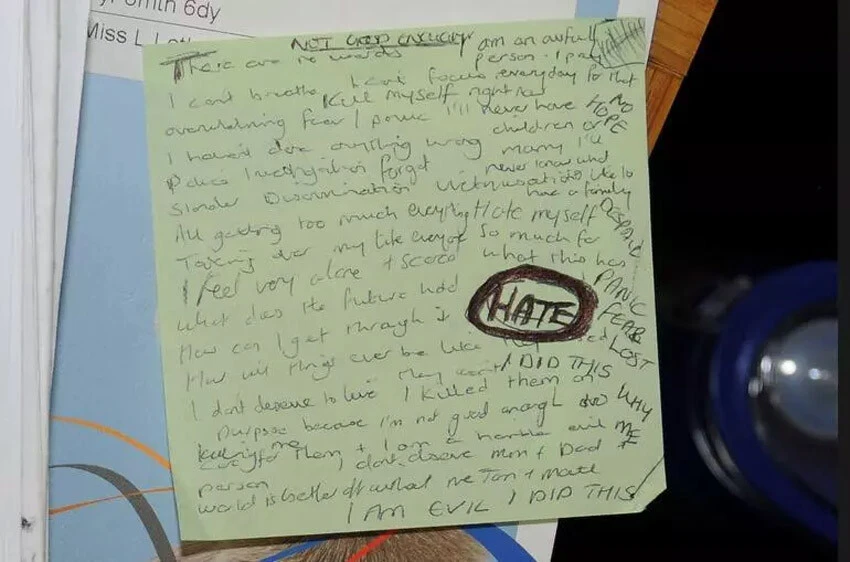 Smith 6dy
Miss L
NOT GOOD ENOUGH
There are no words I am an awful
person . I pay
I can't breathe I can't focus everyday for that
Kill myself right now
overwhelming fear / panic I'll never have NO
HOPE
I haven't done anything wrong children or
marry I'll
Police Investigation forget never know what
Slander Discrimination Victimisation it's like to
have a family
All getting too much everything Hate myself DESPAIR
Taking over my life so much for
I feel very alone + scared what this has
What does the future hold PANIC
HATE
How can I get through it FEAR
How will things ever be like LOST
I DID THIS
I don't deserve to live They I killed them on WHY
purpose because I'm not good enough to ME
Killing me
care for them + I am a horrible evil
person I don't deserve mum + Dad +
world is better off without me Tom + mate
I AM EVIL I DID THIS